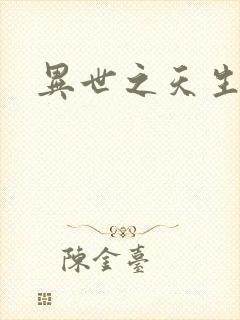 異世之天生
陳金臺